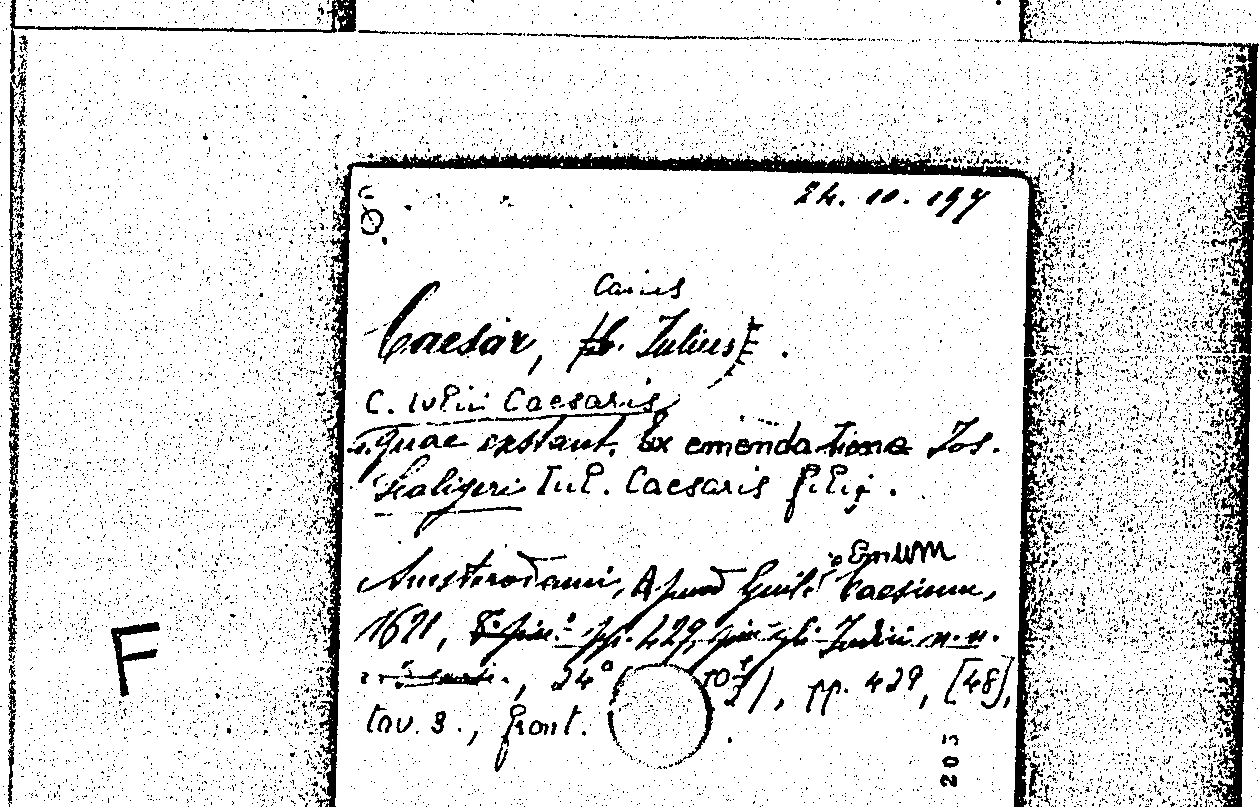 Caius
Caesar, Iulius.
C. Iulii Caesaris
quae exstant. Ex emendatione Ios.
Scaligeri Iul. Caesaris filij.
Amsterodami, Apud Guil. Caesium,
1621, pp. 429,
24°, pp. 429, [48],
tav. 3., front.
203
F